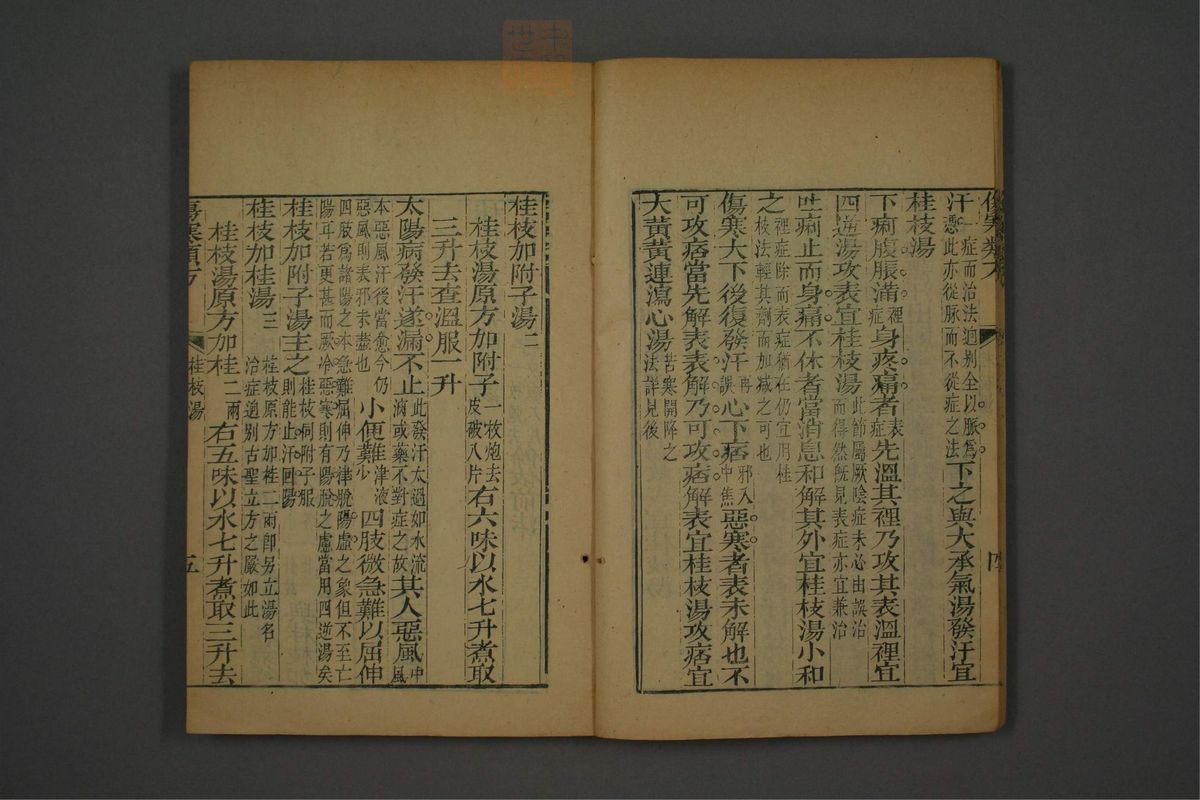 汗憑此亦從脈而不從症之法一症而治法迥别全以脈爲下之與大承氣湯發汗宜
桂枝湯
下痢腹脹滿裡症身疼痛者表症先溫其裡乃攻其表溫裡宜
四逆湯攻表宜桂枝湯此節屬厥陰症未必由誤治而得然旣見表症亦宜兼治
吐痢止而身痛不休者當消息和解其外宜桂枝湯小和
之裡症除而表症猶在仍宜用桂枝法輕其劑而加减之可也
傷寒大下後復發汗再誤心下痞邪入中焦惡寒者表未解也不
可攻痞當先解表表解乃可攻痞解表宜桂枝湯攻痞宜
大黃黃連瀉心湯苦寒開降之法詳見後
四
桂枝加附子湯二
桂枝湯原方加附子一枚炮去皮破八片右六味以水七升煮取
三升去查溫服一升
太陽病發汗遂漏不止此發汗太過如水流漓或藥不對症之故其人惡風中風
本惡風汗後當愈今仍惡風則表邪未盡也小便難津液少四肢微急難以屈伸
四肢爲諸陽之本急難屈伸乃津脫陽虛之象但不至亡陽耳若更甚而厥冷惡寒則有陽脫之慮當用四逆湯矣
桂枝加附子湯主之桂枝同附子服則能止汗回陽
桂枝加桂湯三桂枝原方加桂二兩卽另立湯名治症迥别古聖立方之嚴如此
桂枝湯原方加桂二兩右五味以水七升煮取三升去
傷寒類方
桂枝湯
五